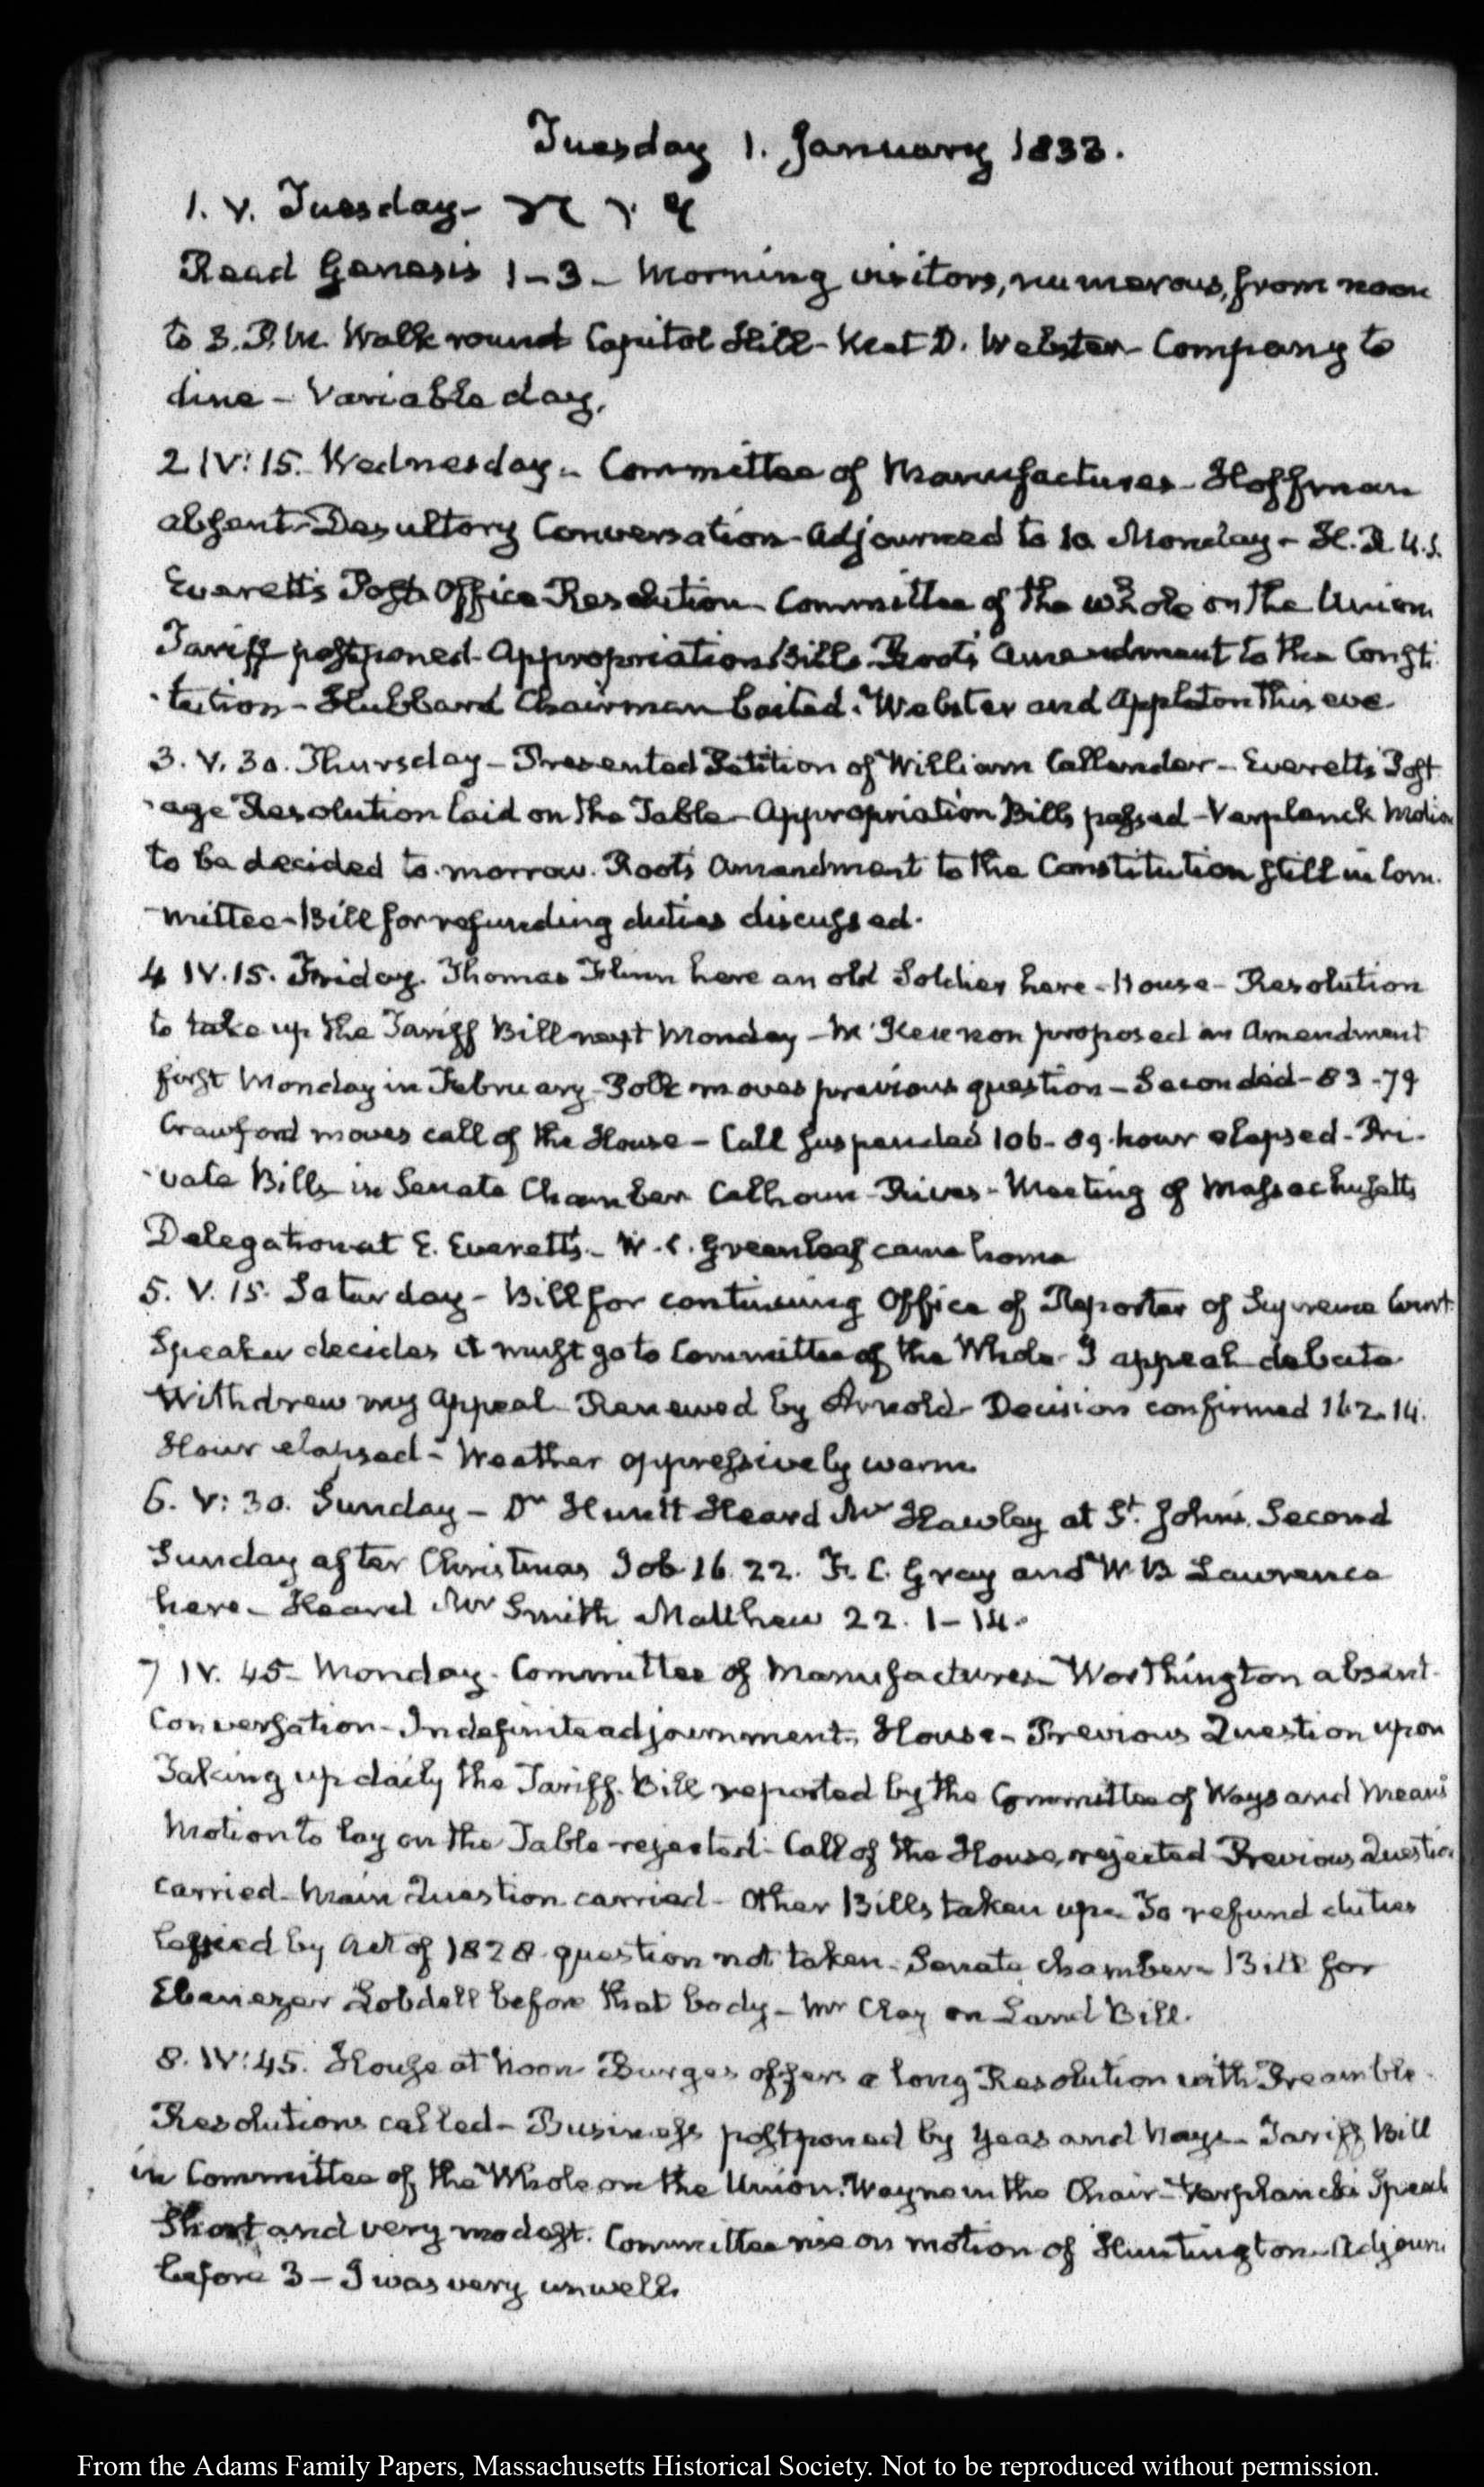 Tuesday 1. January 1833.
1. V. Tuesday-
Read Genesis 1-3- Morning visitors, numerous, from noon
to 3. P.M. Walk round Capitol Hill- Met D. Webster- Company to
dine- Variable day.
2 IV:15. Wednesday- Committee of Manufactures- Hoffman
absent- Desultory Conversation- Adjourned to 10 Monday- H.R.U.S.
Everett's Post Office Resolution- Committee of the whole on the Union
Tariff postponed- Appropriation Bills- Root's Amendment to the Consti
tution- Hubbard Chairman baited. Webster and Appleton this eve
3. V. 30. Thursday- Presented Petition of William Callender- Everett's Post
age Resolution laid on the Table- Appropriation Bills passed- Verplanck Motion
to be decided to-morrow. Root's Amendment to the Constitution still in Com-
mittee- Bill for refunding duties discussed.
4 IV.15. Friday. Thomas Flinn here an old Soldier here- House- Resolution
to take up the Tariff Bill next Monday- McKennon proposed an Amendment
first Monday in February- Polk moves previous question- Seconded- 83-79
Crawford moves call of the House- Call suspended 106-89. hour elapsed- Pri-
vate Bills- in Senate Chamber Calhoun- Rives- Meeting of Massachusetts
Delegation at E. Everett's- W. C. Greenleaf came home
5. V. 15. Saturday- Bill for continuing Office of Reporter of Supreme Court.
Speaker decides it must go to Committee of the Whole- I appeal- debate
Withdrew my Appeal- Renewed by Arnold- Decision confirmed 162.14.
Hour elapsed- Weather oppressively warm
6. V:30. Sunday- Dr Huntt Heard Mr Hawley at St. John's. Second
Sunday after Christmas Job 16. 22. F. C. Gray and W. B Lawrence
here- Heard Mr Smith Matthew 22. 1-14.
7 IV. 45- Monday- Committee of Manufactures- Worthington absent-
Conversation- Indefinite adjournment- House- Previous Question upon
Taking up daily the Tariff Bill reported by the Committee of Ways and Means
Motion to lay on the Table rejected- Call of the House, rejected Previous Question
carried- Main Question carried- Other Bills taken up- To refund duties
by Act of 1828 question not taken- Senate chamber- Bill for
Ebenezer Lobdell before that body- Mr Clay on Land Bill.
8. IV:45. House at Noon Burges offers a long Resolution with Preamble-
Resolutions called- Business postponed by Yeas and Nays- Tariff Bill
in Committee of the Whole on the Union. Wayne in the Chair- Verplanck's Speech
Short and very modest. Committee rise on motion of Huntington- Adjourn
before 3- I was very unwell.
From the Adams Family Papers, Massachusetts Historical Society. Not to be reproduced without permission.